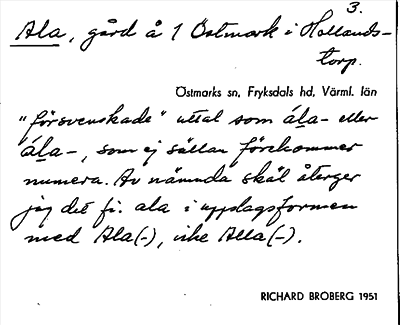 3.
Ala, gård å 1 Östmark i Hollands-
torp.
Östmarks sn, Fryksdals hd, Värml. län
"försvenskade" uttal som ála- eller
ála-, som ej sällan förekommer
numera. Av nämnda skäl återger
jag det fi. ala i uppslagsformen
med Ala(-), icke Alla(-).
RICHARD BROBERG 1951